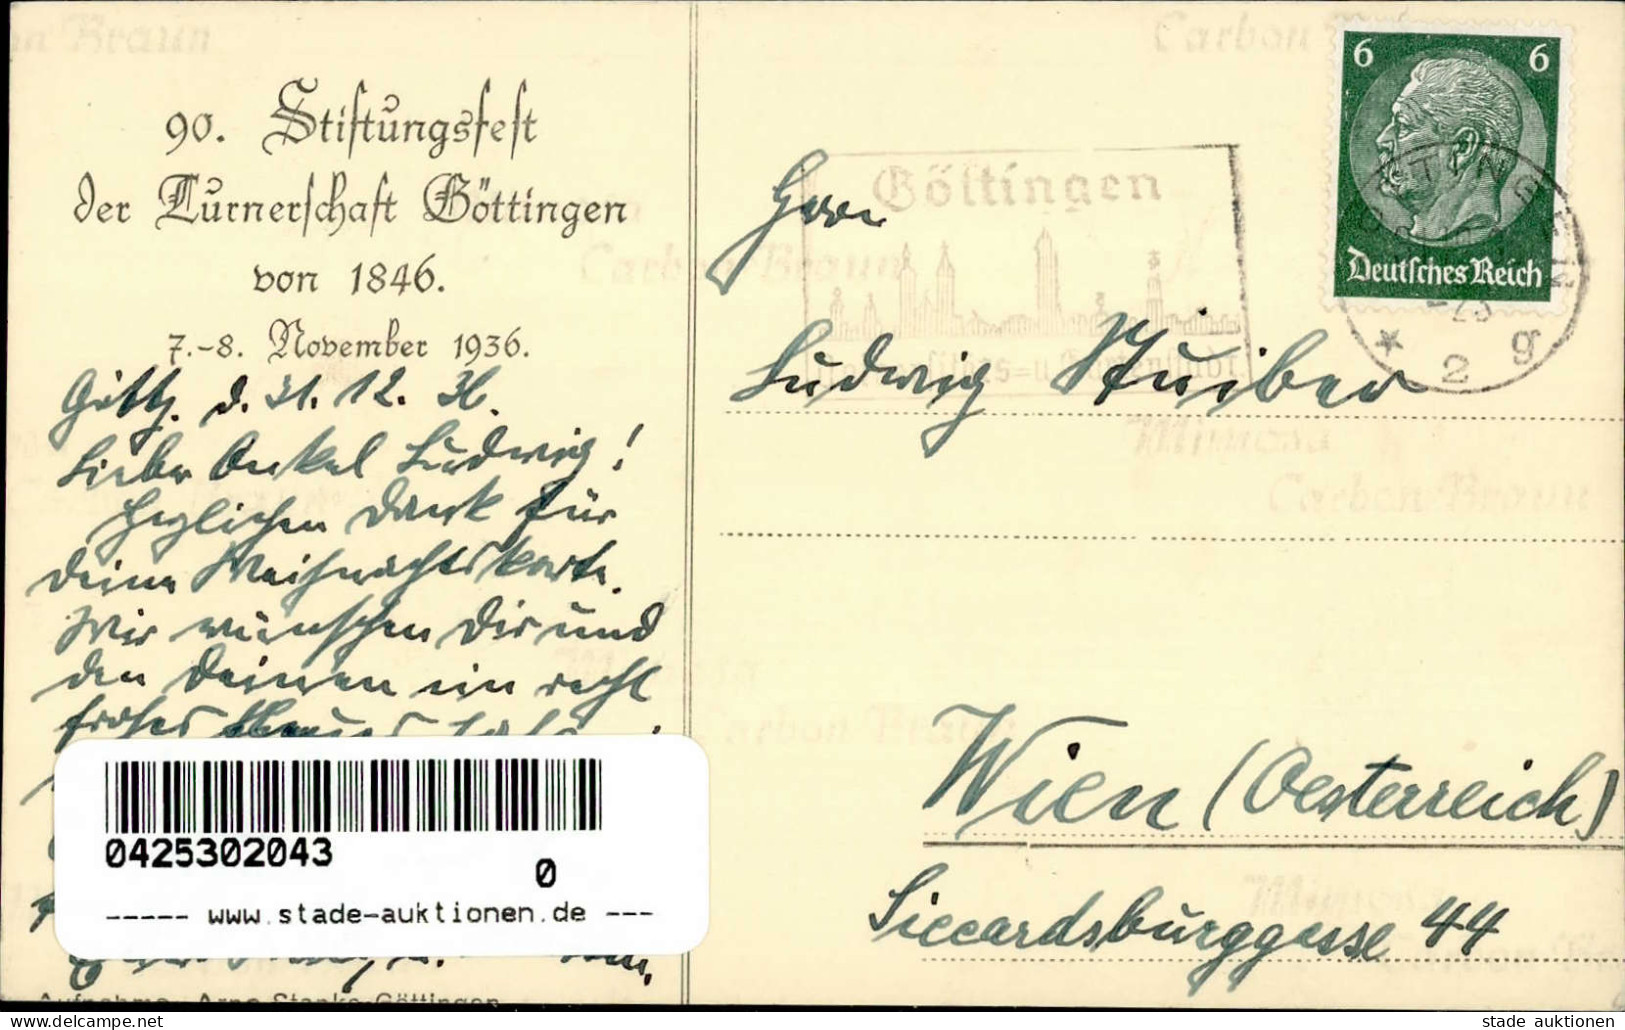 90. Stiftungsfest
der Turnerschaft Göttingen
von 1846.
7.-8. November 1936.
Gött. d. 31. 12. 36.
Lieber Onkel Ludwig!
Herzlichen Dank für
Deine Weihnachtskarte.
Wir wünschen Dir und
den Deinen ein recht
frohes
0425302043
0
----- www.stade-auktionen.de ---
Aufnahme Arno Göttingen
6 6
Deutsches Reich
GÖTTINGEN
2 g
Göttingen
Universitäts- u. Gartenstadt.
Herrn
Ludwig Stuiber
Wien (Oesterreich)
Siccardsburggasse 44
Carbon
Carbon-Braun
Mimosa
Carbon-Braun
Carbon Braun
Mimosa
stade-auktionen.de
stade auktionen